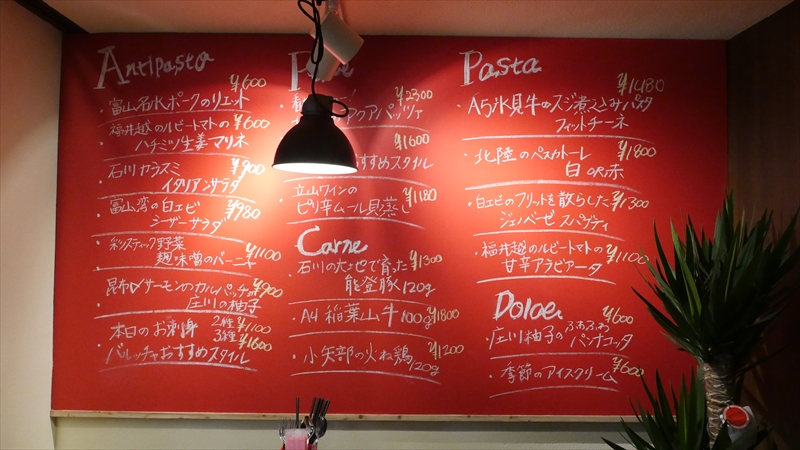 Antipasta
¥600
・富山名水ポークのリエット
福井越のルビートマトの ¥600
ハチミツ生姜マリネ
石川カラスミ ¥900
イタリアンサラダ
・富山湾の白エビ ¥980
シーザーサラダ
・彩りスティック野菜
麹味噌のバーニャ ¥1100
昆布〆サーモンのカルパッチョ ¥900
庄川の柚子
本日のお刺身 2種 ¥1100
3種 ¥1600
バレッチャおすすめスタイル
¥2300
アクアパッツァ
¥1600
おすすめスタイル
・立山ワインの ¥1180
ピリ辛ムール貝蒸し
Carne
・石川の大地で育った ¥1300
能登豚120g
・A4 稲葉山牛 100g ¥1800
・小矢部の火ね鶏 ¥1200
120g
Pasta
¥1480
・A5氷見牛のスジ煮こみパスタ
フィットチーネ
・北陸のペスカトーレ ¥1800
白 or 赤
・白エビのフリットを散らした ¥1300
ジェノベーゼ スパゲティ
・福井越のルビートマトの
甘辛アラビアータ ¥1100
Dolce
¥600
・庄川柚子のふわふわ
パンナコッタ
・季節のアイスクリーム ¥600